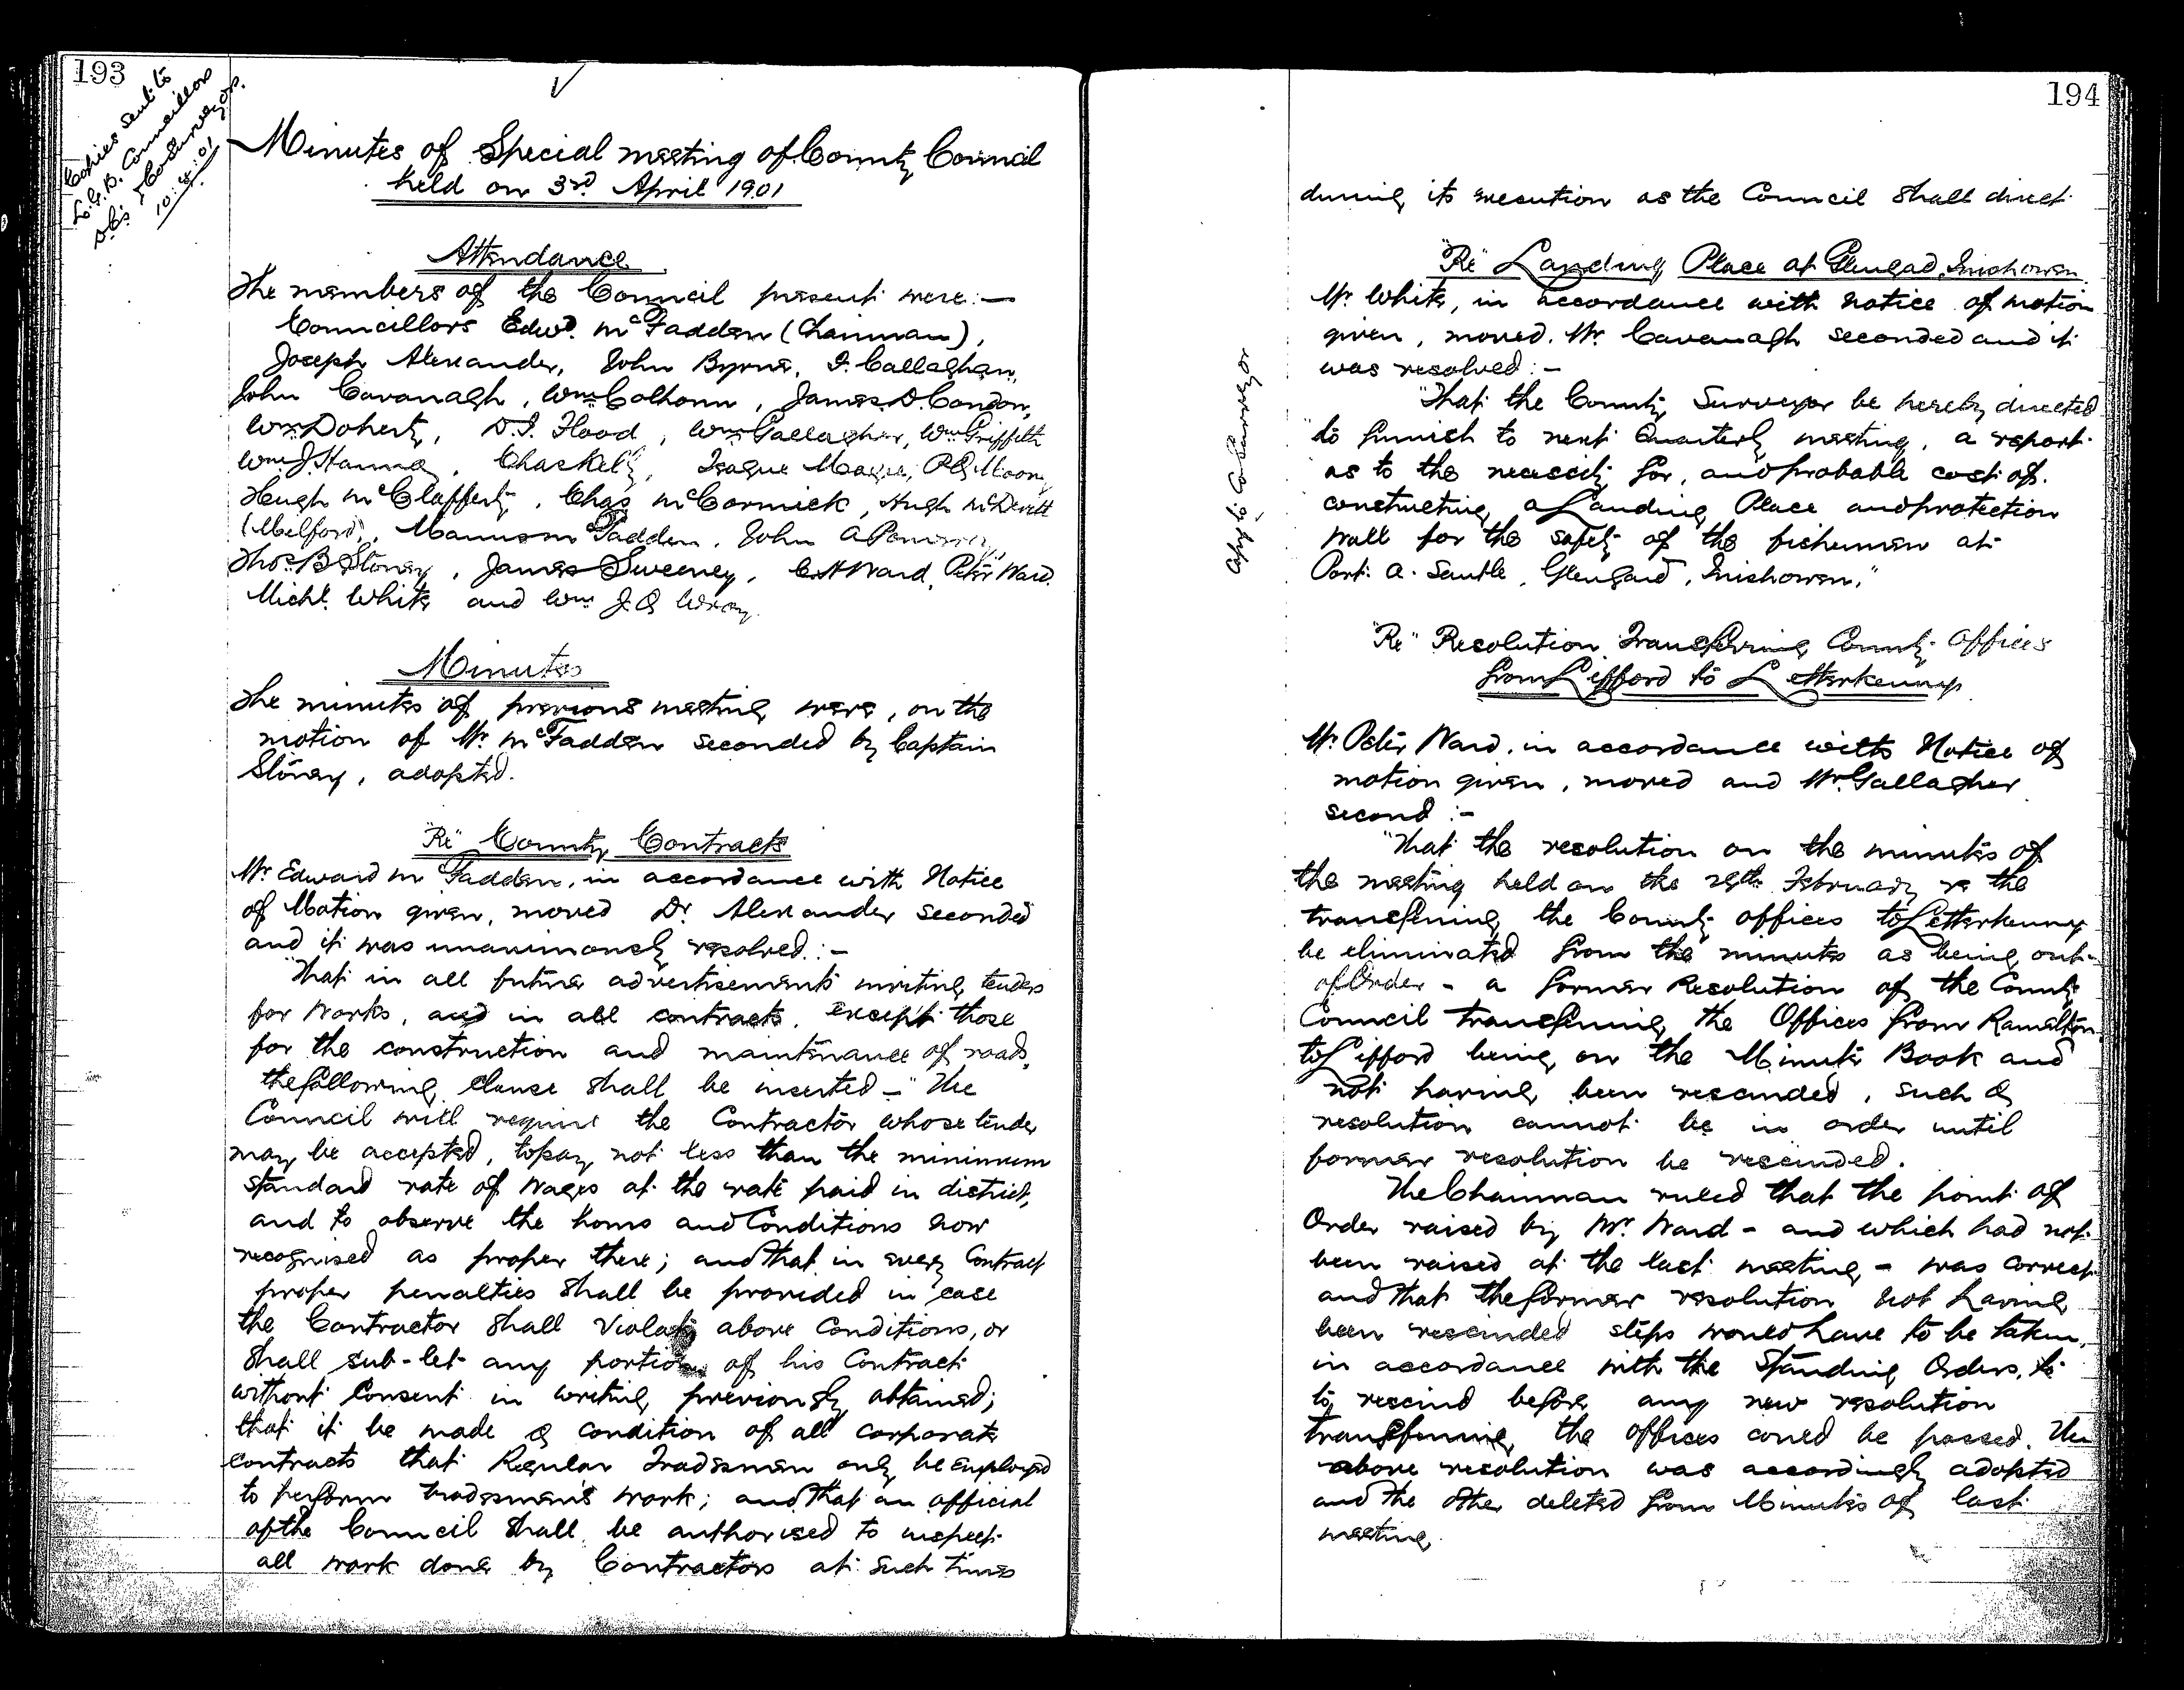 193
Copies sent to
L.G.B. Councillors
& Co Surveyors.
10:4:01
Minutes of Special meeting of County Council
held on 3rd April 1901
Attendance
The members of the Council present were:—
Councillors Edwd. McFadden (Chairman),
Joseph Alexander, John Byrne, F. Callaghan,
John Cavanagh, Wm Colhoun, James D. Condon,
Wm Doherty, D.J. Flood, Wm Gallagher, Wm Griffith
Wm J. Hanna, Chas Kelly, Teague Magee, Moony
Hugh McClafferty, Chas McCormick, Hugh McDevitt
(Melford), Manus McFadden, John A Pomeroy,
Thos. B Stoney, James Sweeney, Ward, Peter Ward.
Michl. White and Wm J.A. Wray.
Minutes
The minutes of previous meeting were, on the
motion of Mr. McFadden seconded by Captain
Stoney, adopted.
"Re" County Contracts
Mr Edward McFadden, in accordance with Notice
of Motion given, moved Dr. Alexander seconded
and it was unanimously resolved:—
"That in all future advertisements inviting tenders
for works, and in all contracts, except those
for the construction and maintenance of roads,
the following clause shall be inserted — "The
Council will require the Contractor whose tender
may be accepted, to pay not less than the minimum
standard rate of wages at the rate paid in district,
and to observe the hours and Conditions now
recognised as proper there; and that in every Contract
proper penalties shall be provided in case
the Contractor shall violate above Conditions, or
shall sub-let any portion of his Contract
without Consent in writing previously obtained;
that it be made a condition of all corporate
contracts that Regular Tradesmen only be employed
to perform tradesman's work; and that an official
of the Council shall be authorised to inspect
all work done by Contractors at such times
194
during its execution as the Council shall direct
"Re" Landing Place at Glengad, Inishowen
Mr. White, in accordance with notice of motion
given, moved. Mr. Cavanagh seconded and it
was resolved:—
Copy to Co Surveyor
"That the County Surveyor be hereby directed
to furnish to next Quarterly meeting, a report
as to the necessity for, and probable cost of
constructing a Landing Place and protection
wall for the safety of the fishermen at
Port. a. Glengad, Inishowen."
"Re" Resolution Transferring County Offices
from Lifford to Letterkenny
Mr. Peter Ward, in accordance with Notice of
motion given, moved and Mr. Gallagher
second:—
"That the resolution on the minutes of
the meeting held on the 28th February re the
transferring the County offices to Letterkenny
be eliminated from the minutes as being out-
of Order - a former Resolution of the County
Council transferring the Offices from Ramelton
to Lifford being on the Minute Book and
not having been rescinded, such a
resolution cannot be in order until
former resolution be rescinded.
The Chairman ruled that the point of
Order raised by Mr. Ward - and which had not
been raised at the last meeting - was correct
and that the former resolution not having
been rescinded steps would have to be taken,
in accordance with the Standing Orders, to
to rescind before any new resolution
transferring the offices could be passed. The
above resolution was accordingly adopted
and the other deleted from Minutes of last
meeting.